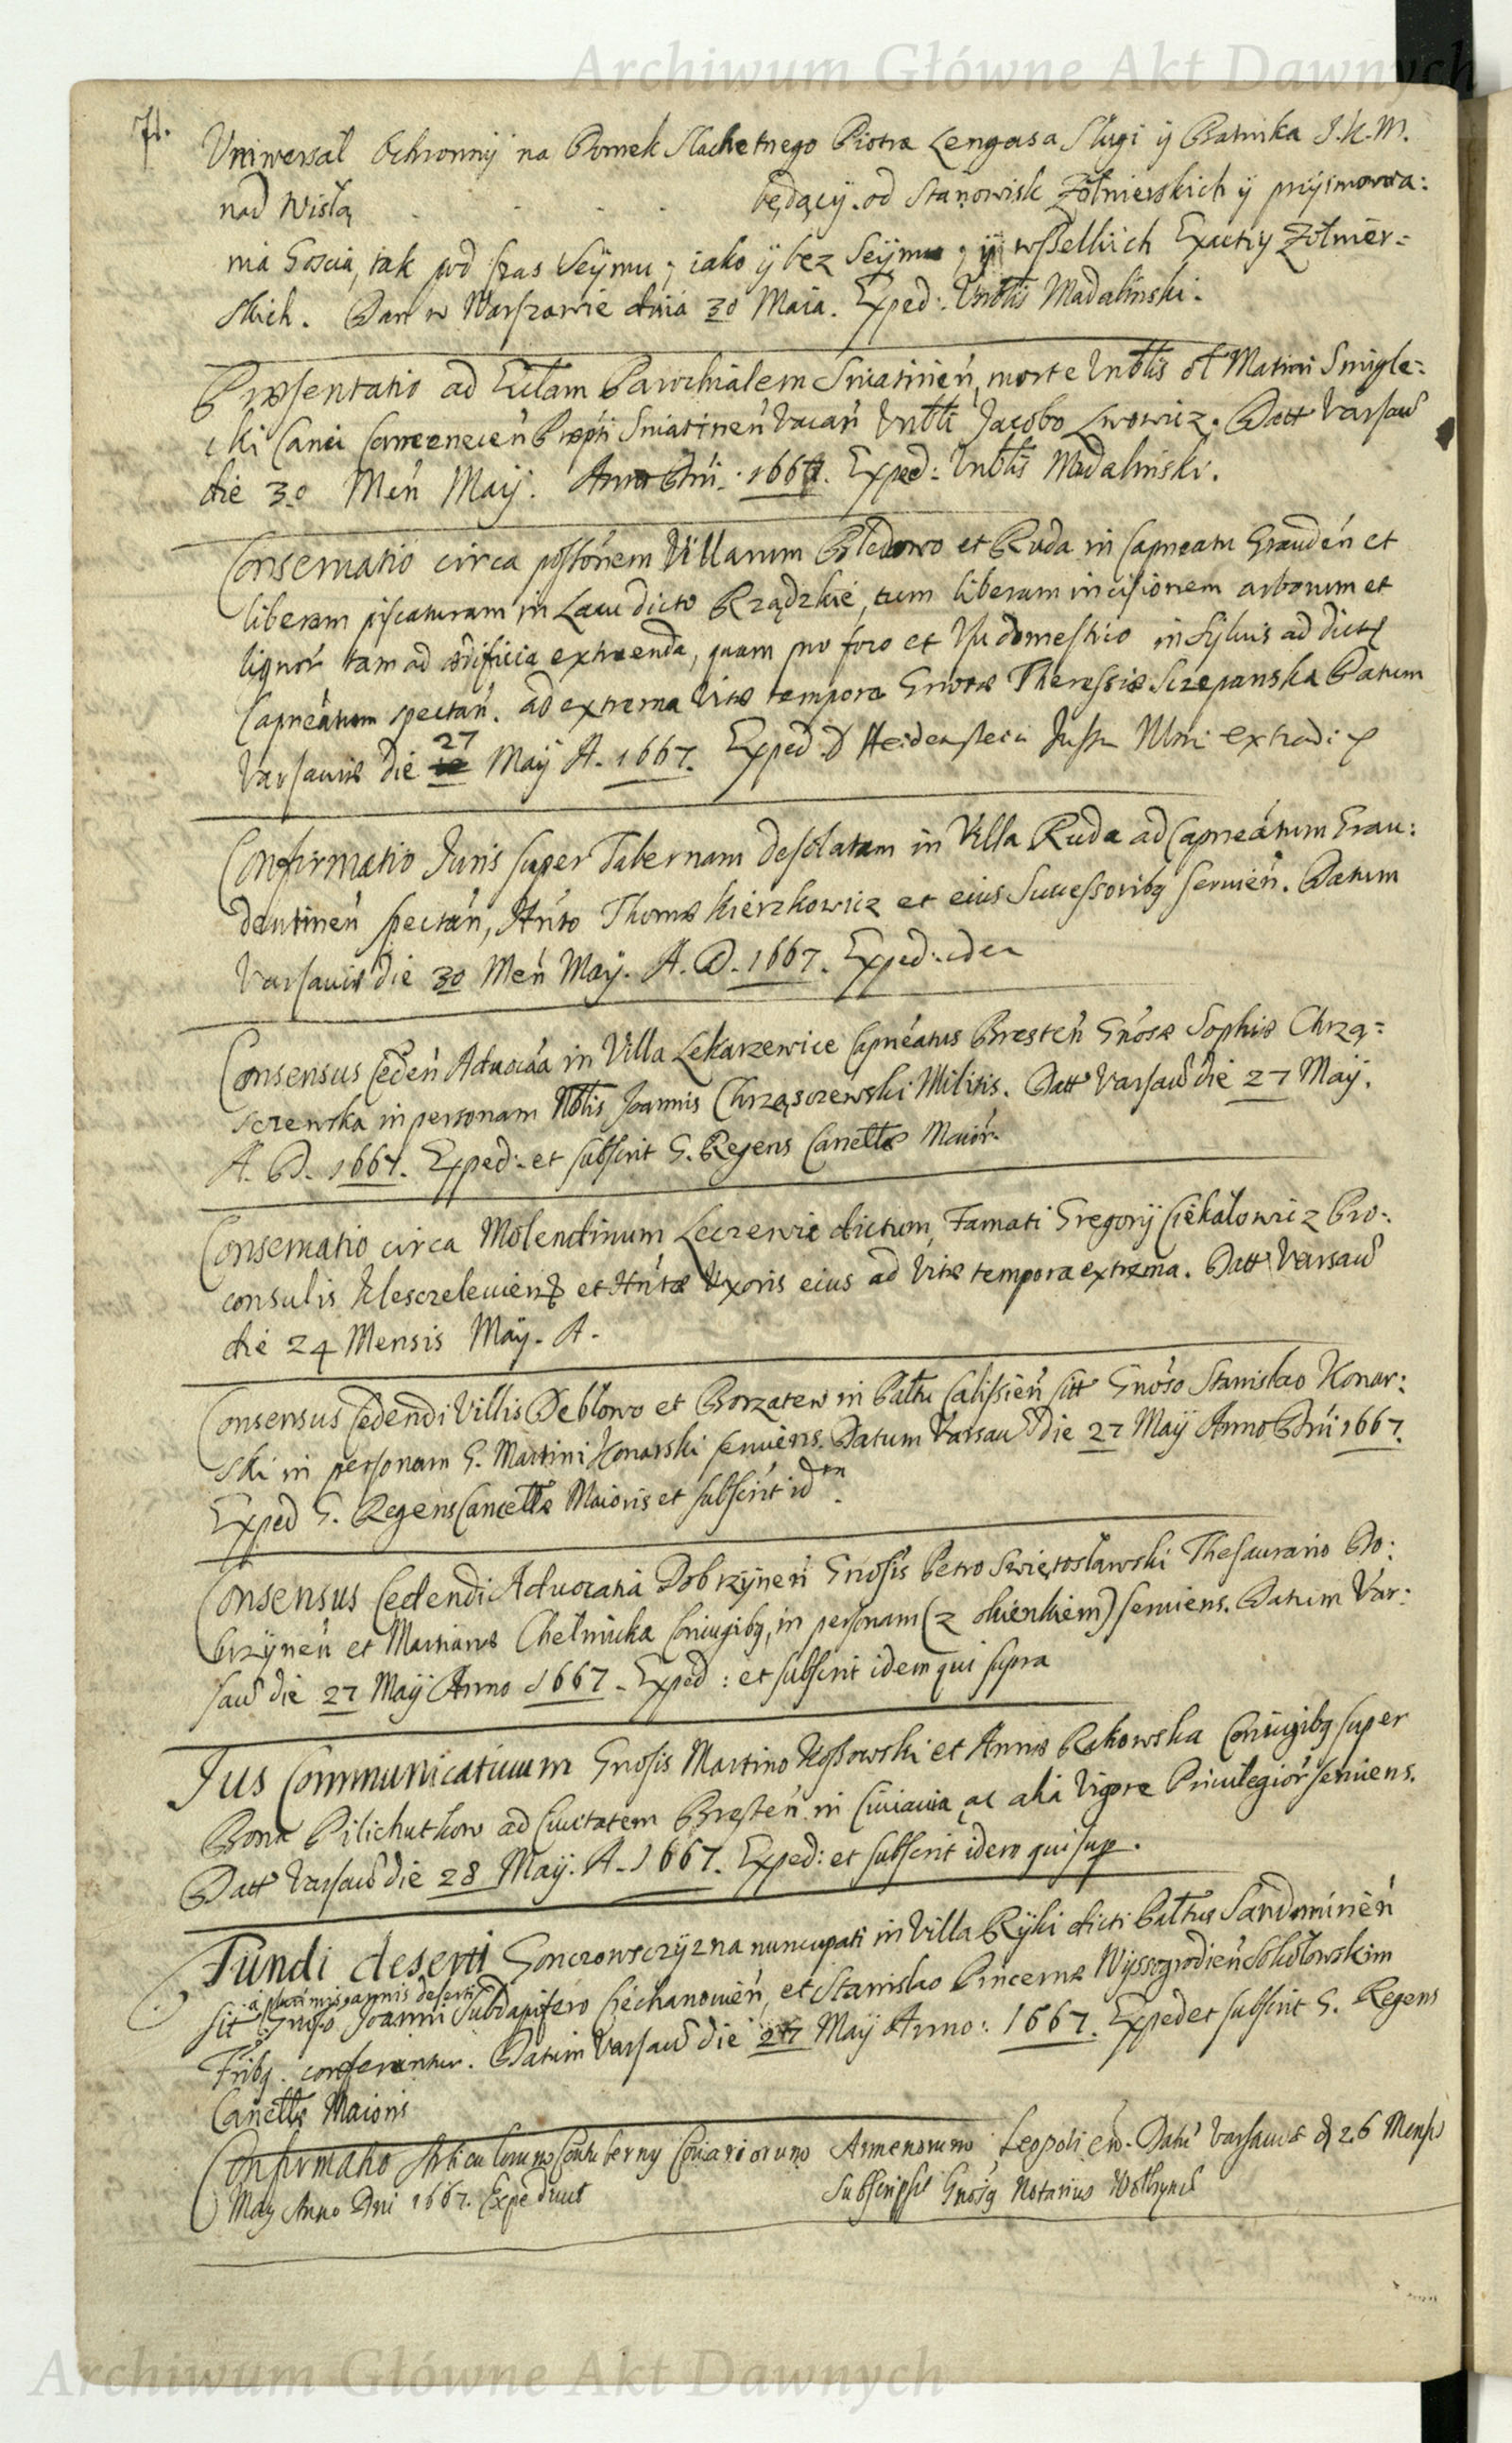 Archiwum Główne Akt Dawnych
71.
Vniwersał Ochronny na Domek Slachetnego Piotra Lengasa Sługi ÿ Bratnika J.K.M.
nad Wisłą . . . . będącÿ. od Stanowisk Zołnierskich ÿ prziÿmowa:
nia Goscia, tak pod szas Seÿmu, iako ÿ bez Seÿmu, ÿ wsselkich Exactiÿ Zołnier=
skich. Dan w Warszawie dnia 30 Maia. Exped: Vnblis Madalinski.
Præsentatio ad Ecclam Parochialem Sniatinen, morte Vnblis ol Matini Smigle=
cki Canci Camenecen Præpti Sniatinen Vacan Vnbli Jacobo Lwowicz. Datt Varsaw
die 30 Men Maÿ. Anno Dni. 1667. Exped: Vnblis Madalinski.
Conseruatio circa possionem Villarum Bledowo et Ruda in Capneatu Grauden et
liberam piscaturam in Lacu dicto Rządzkie, tum liberam incisionem arborum et
lignor tam ad ædificia extruenda, quam pro foco et Vsu domestico in Syluis ad dictu
Capneatum spectan. ad extrema Vitæ tempora Gnosæ Theressiæ Sczepanska Datum
Varsauiæ die 27 Maÿ A. 1667. Exped. D Heidenstein Jussu Illmi extradi
Confirmatio Juris super Tabernam desolatam in Villa Ruda ad Capneatum Grau:
dentinen spectan, Hnto Thomæ Kierzkowicz et eius Successoribq seruien. Datum
Varsauiæ die 30 Men Maÿ. A. D. 1667. Exped. idem
Consensus Ceden Aduocia in Villa Lekarzewice Capneatus Bresten Gnosæ Sophiæ Chrzą=
sczewska in personam Nblis Joannis Chrząsczewski Militis. Datt Varsaw die 27 Maÿ.
A. D. 1667. Exped. et subscrit G. Regens Cancllæ Maior.
Conseruatio circa Molendinum Leczewie dictum, Famati Gregorÿ Ciekałowicz Pro:
consulis Kleszelouien et Hntæ Vxoris eius ad Vitæ tempora extrema. Datt Varsaw
die 24 Mensis Maÿ. A.
Consensus Cedendi Villis Deblowo et Borzatew in Paltu Calissien sitt Gnoso Stanislao Konar:
ski in personam G. Martini Konarski seruiens. Datum Varsaw die 27 Maÿ Anno Dni 1667.
Exped G. Regens Cancellæ Maioris et subscrit idem.
Consensus Cedendi Aduocatia Dobrzÿnen Gnosis Petro Swiętosławski Thesaurario Do:
brzÿnen et Marianæ Chełmicka Coniugibq, in personam (z okienkiem) seruiens. Datum Var:
saw die 27 Maÿ Anno 1667. Exped: et subscrit idem qui supra
Jus Communicatiuum Gnosis Martino Kossowski et Annæ Rakowska Coniugibq super
Bona Pilichutkow ad Ciuitatem Bresten in Cuiauia ac alia Vigore Priuilegior seruiens.
Datt Varsaw die 28 Maÿ. A. 1667. Exped: et subscrit idem qui sup.
Fundi deserti Gonczowsczÿzna nuncupati in Villa Rÿki dicti Paltus Sandomirien
a plurimis annis deserti
sit Gnoso Joanni Subdapifero Ciechanouien, et Stanislao Pincernæ Wyssogrodien Sokołowskim
Fribq. conferuntur. Datum Varsaw die 27 Maÿ Anno: 1667. Exped et subscrit G. Regens
Cancllæ Maioris
Confirmatio Articulorum Contubernÿ Coriariorum Armenorum Leopolien. Datt Varsauiæ d 26 Mensis
Maÿ Anno Dni 1667. Expeditus Subscripsit Gnosq Notarius Wolhynæ
Archiwum Główne Akt Dawnych